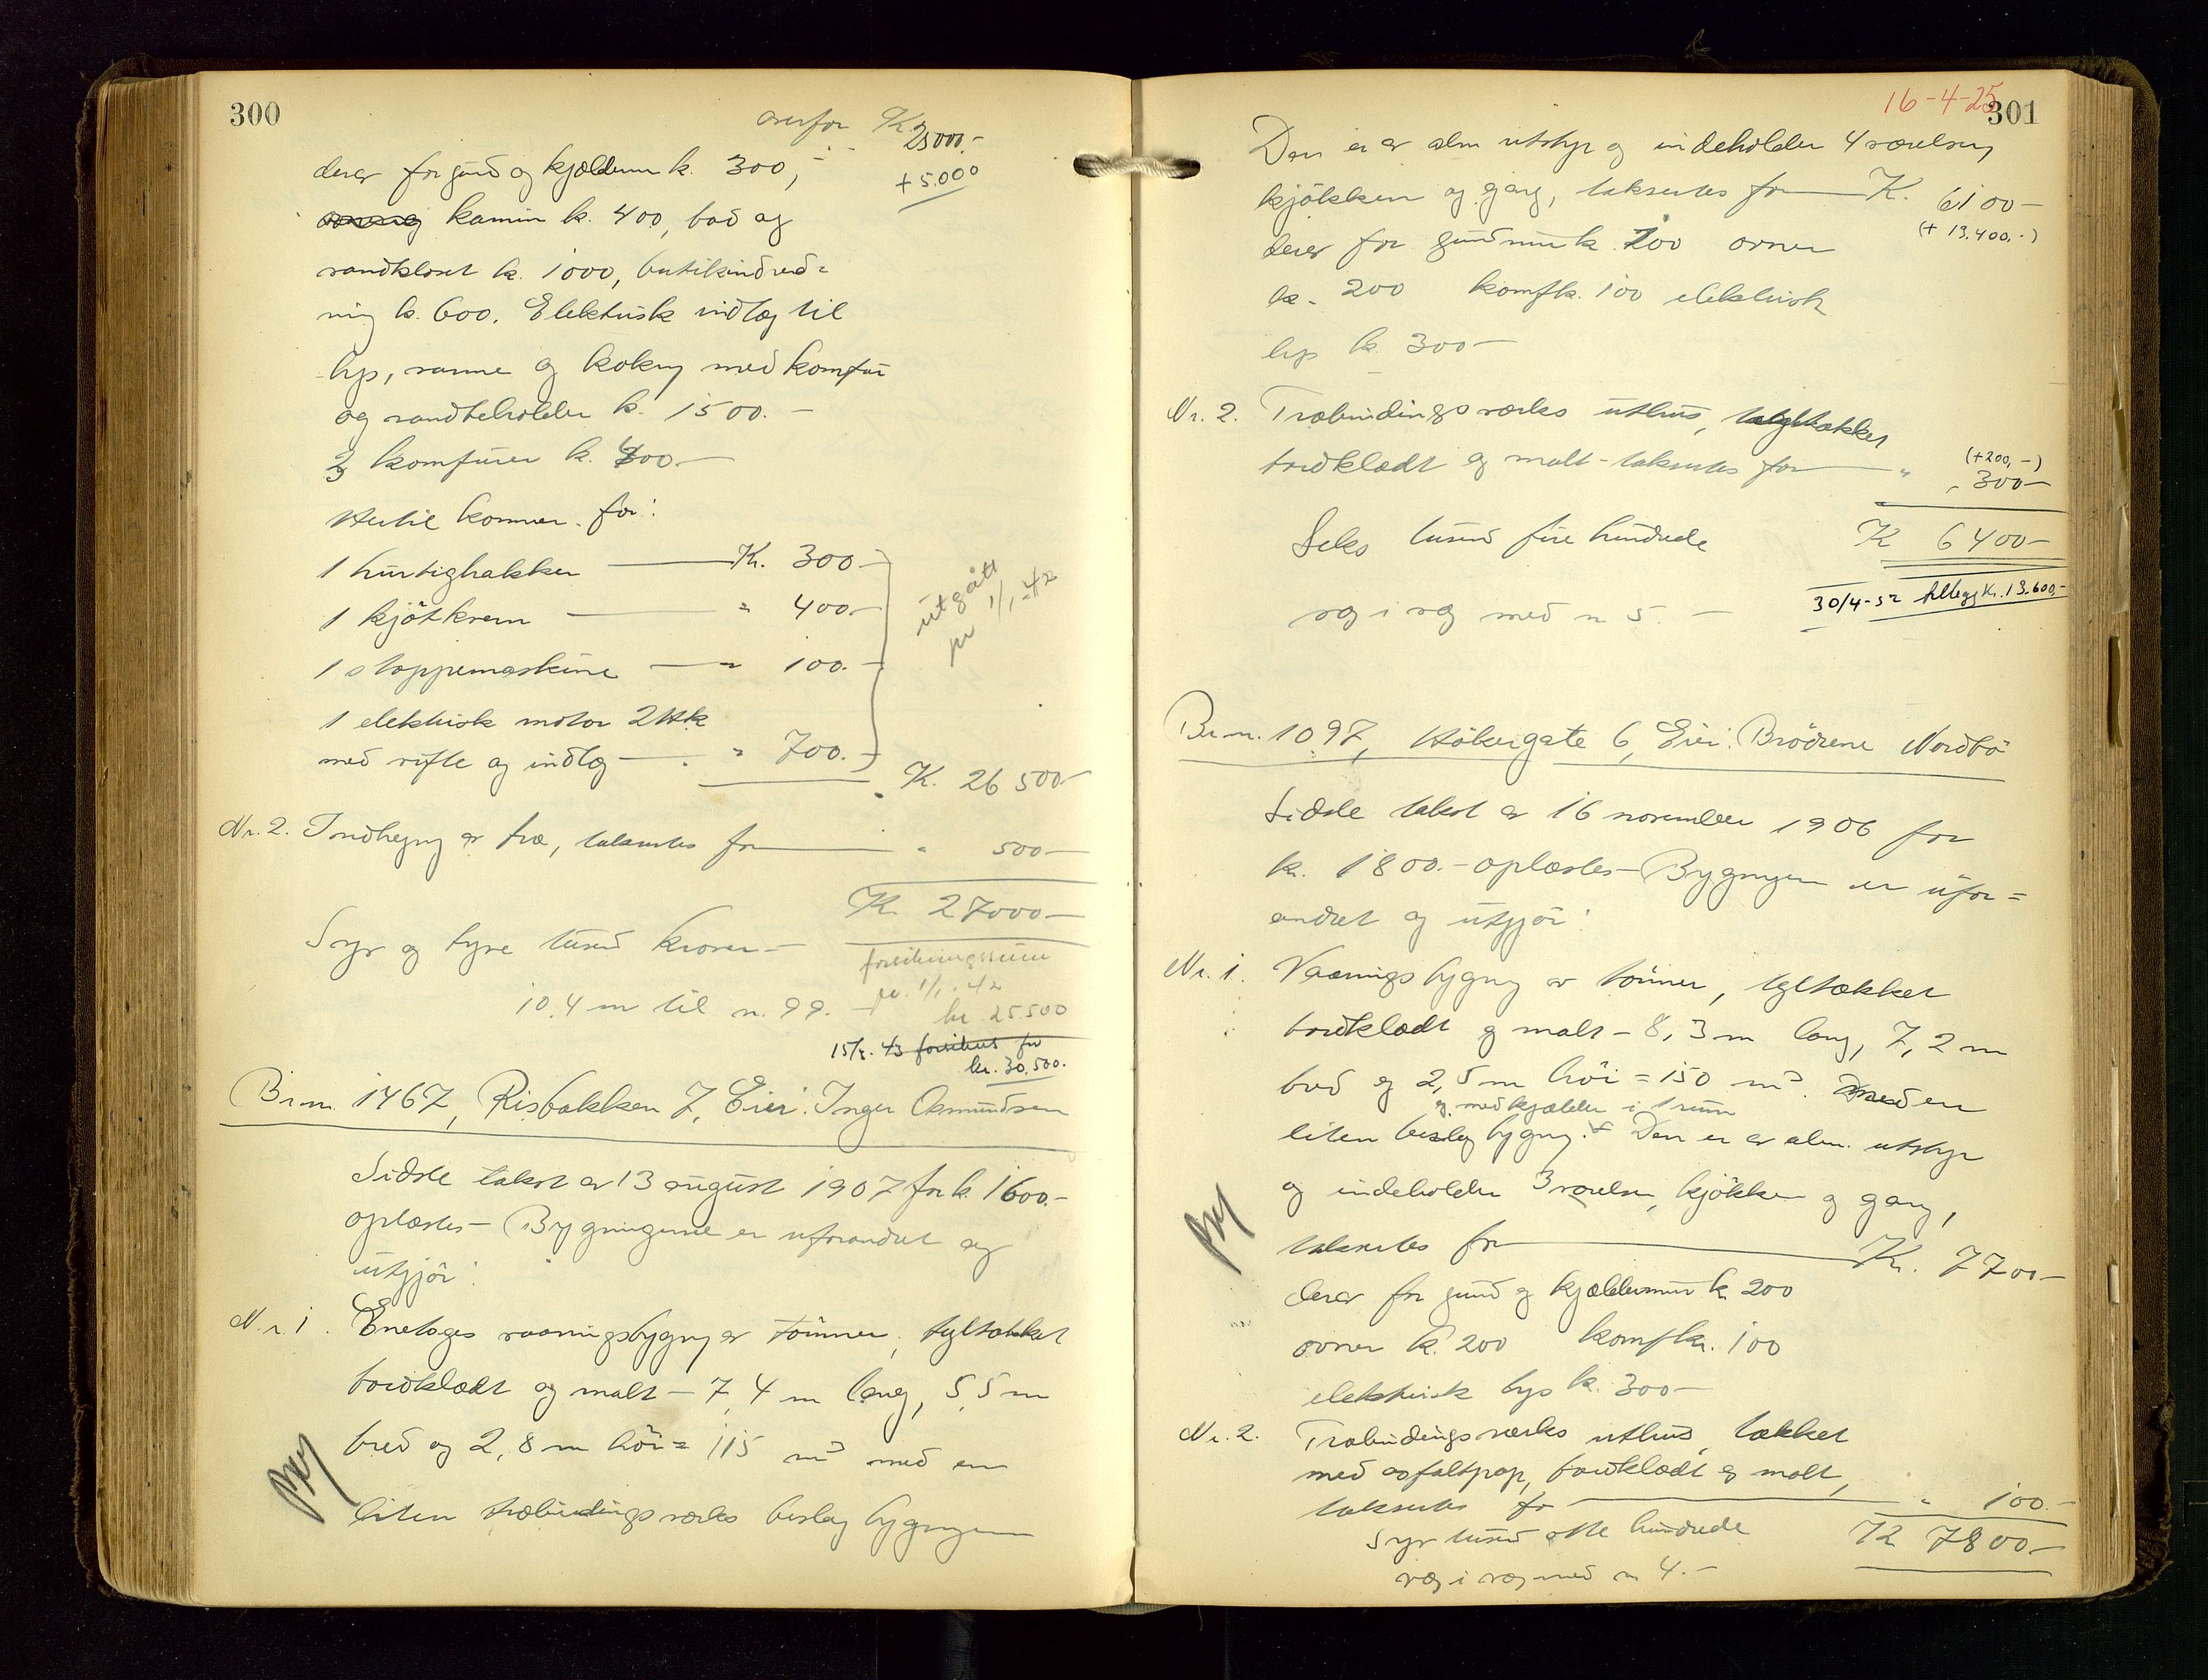 300
overfør K. 25000.-
+ 5.000
derav for grund og kjældermur k. 300,-
kamin k. 400, bad og
vandkloset k. 1000, butikindred=
ning k. 600. Elektrisk indlæg til
lys, varme og kokning med komfur
og vandbeholder k. 1500.-
komfurer k. 400.-
Hertil kommer for:
1 hurtighakker K. 300.-
1 kjøtkvern " 400.-
1 stoppemaskine " 100.-
1 elektrisk motor 2 Hk
med vifte og indlæg " 700.-
utgått
pr 1/1-42
K. 26 500.-
Nr. 2. Indhegning av træ, taksertes for " 500-
K. 27000-
Syv og tyve tusind kroner-
forsikringssum
pr. 1/1-42
kr 25.500
10,4 m til n. 99.-
forsikret for
kr. 30.500.
Br.nr. 1467, Risbakken 7, Eier: Inger Osmundsen
Sidste takst av 13 august 1907 for k. 1600.-
oplæstes- Bygningerne er uforandret og
utgjør:
Nr. 1. Enetages vaaningsbygning av tømmer, tegltækket
bordklædt og malt - 7,4 m lang, 5,5 m
bred og 2,8 m høi = 115 m³ med en
liten træbindingsverks beslag bygningen
16-4-25
301
Den er av alm utstyr og indeholder 4 værelser,
kjøkken og gang, taksertes for K. 6100-
(+ 13.400.-)
derav for grundmur k. 200 ovner
k. 200 komf k. 100 elektrisk
lys k. 300-
Nr. 2. Træbindingsverks uthus, tegltækket
bordklædt og malt - taksertes for " 300-
(+200,-)
Seks tusind fire hundrede K 6400-
30/4-52 tillegg kr. 13.600,-
væg i væg med n 5.-
Br.nr. 1097, Høkergate 6, Eier: Brødrene Nordbø
Sidste takst av 16 november 1906 for
kr. 1800.- oplæstes- Bygningen er ufor=
andret og utgjør:
Nr. 1. Vaaningsbygning av tømmer, tegltækket
bordklædt og malt - 8,3 m lang, 7,2 m
bred og 2,5 m høi = 150 m³ med en
og med kjælder i 1 rum
liten beslag bygning. Den er av alm. utstyr
og indeholder 3 værelser, kjøkken og gang,
taksertes for K. 7700-
derav for grund og kjældermur k 200
ovner k. 200 komf kr. 100
elektrisk lys k. 300-
Nr. 2. Træbindingsverks uthus, tækket
med asfaltpap, bordklædt og malt,
taksertes for " 100.-
Syv tusind otte hundrede K 7800-
væg i væg med n 4.-